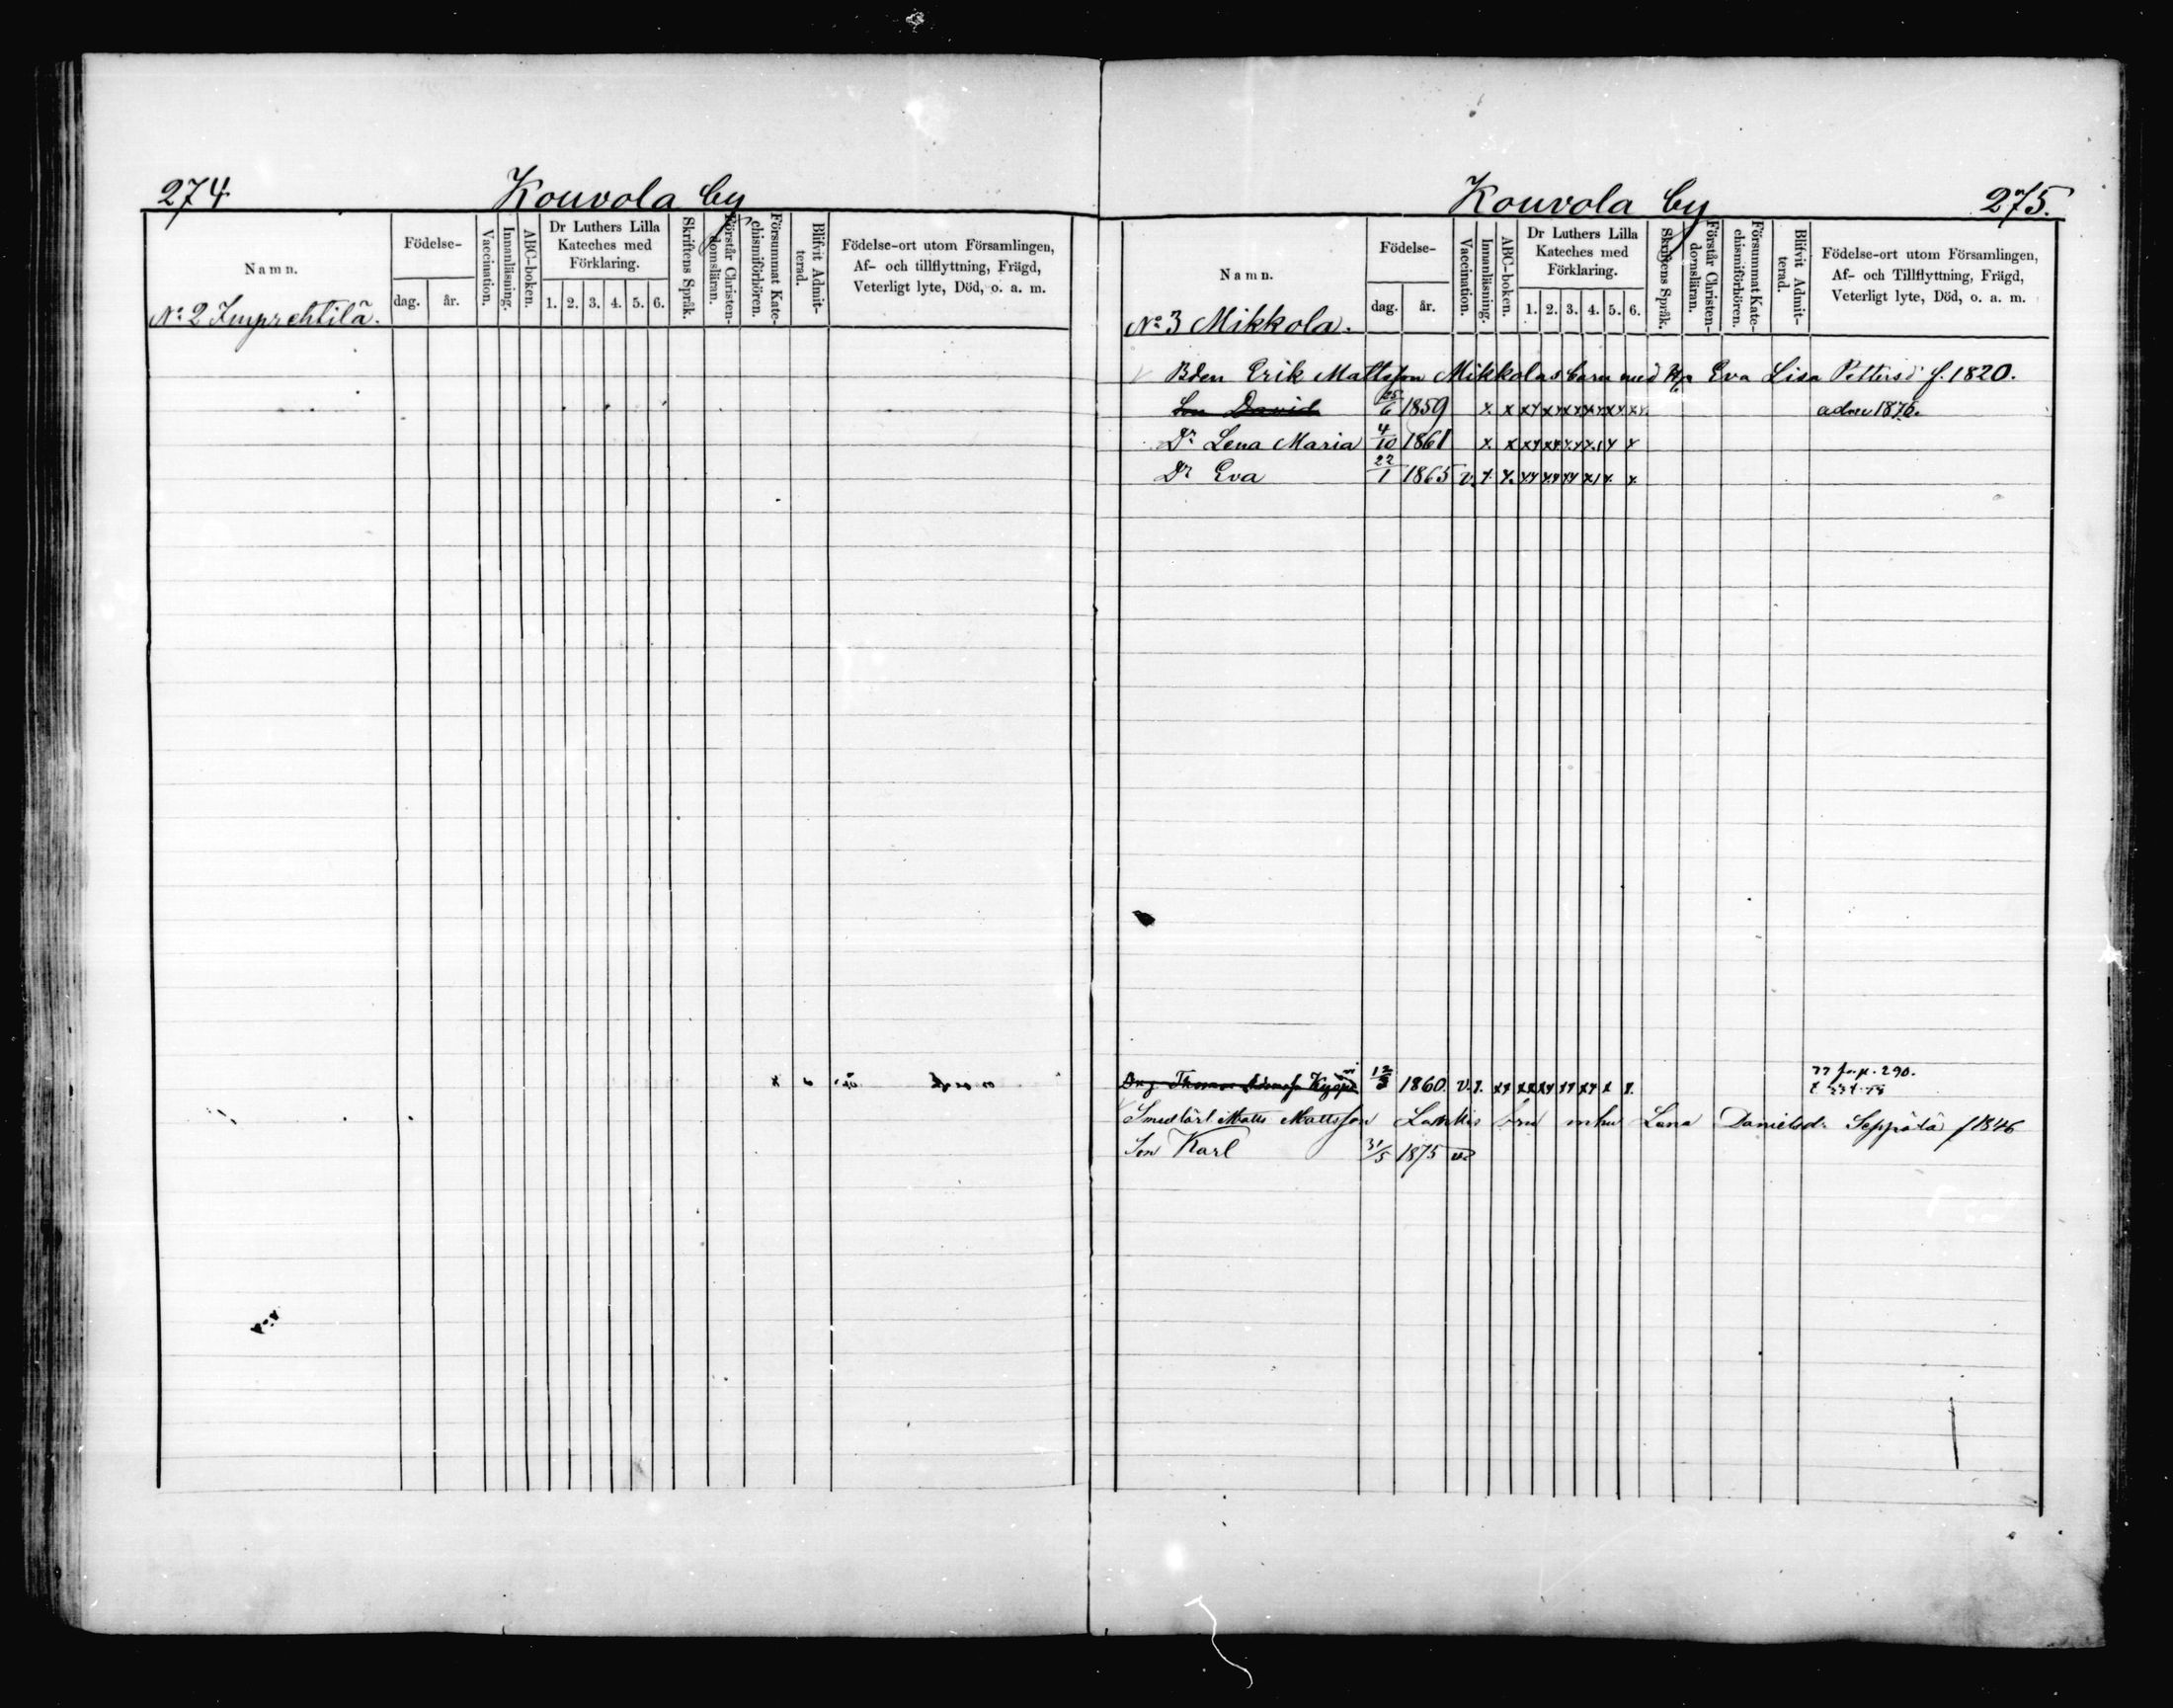 274
Kouvola by
Namn.
Födelse-
dag.
år.
Vaccination.
Innanläsning.
ABC-boken.
Dr Luthers Lilla
Kateches med
Förklaring.
1. 2. 3. 4. 5. 6.
Skriftens Språk.
Förstår Christen-
domsläran.
Försummat Kate-
chismiförhören.
Blifvit Admit-
terad.
Födelse-ort utom Församlingen,
Af- och tillflyttning, Frägd,
Veterligt lyte, Död, o. a. m.
No 2 Imprehtilä.
Kouvola by
275.
Namn.
Födelse-
dag.
år.
Vaccination.
Innanläsning.
ABC-boken.
Dr Luthers Lilla
Kateches med
Förklaring.
1. 2. 3. 4. 5. 6.
Skriftens Språk.
Förstår Christen-
domsläran.
Försummat Kate-
chismiförhören.
Blifvit Admit-
terad.
Födelse-ort utom Församlingen,
Af- och Tillflyttning, Frägd,
Veterligt lyte, Död, o. a. m.
No 3 Mikkola.
Bden Erik Mattsson Mikkolas barn med Eva Lisa Pettersd f. 1820.
Son David 25/6 1859 x x xx xx xx xx xx xx 1876.
Dr Lena Maria 4/10 1861 x x
Dr Eva 22/1 1865 v. x x
Drg Thomas 12/3 1860 v. 77 fr. p. 290.
Smedlärl. Matts Mattsson mhu Lena Danielsd. Seppälä f 1846
Son Karl 31/5 1875